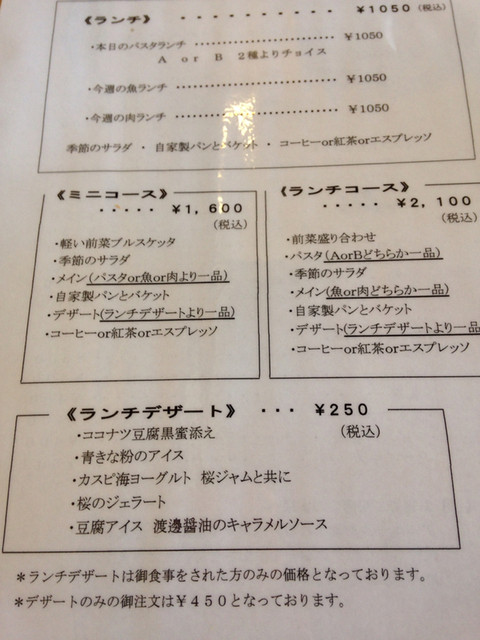 《ランチ》 ・・・・・・・・・・ ￥1050 (税込)
・本日のパスタランチ ………………… ￥1050
A or B 2種よりチョイス
・今週の魚ランチ ………………… ￥1050
・今週の肉ランチ ………………… ￥1050
季節のサラダ ・ 自家製パンとバケット ・ コーヒーor紅茶orエスプレッソ
《ミニコース》
・・・・・ ￥1,600
(税込)
・軽い前菜ブルスケッタ
・季節のサラダ
・メイン(パスタor魚or肉より一品)
・自家製パンとバケット
・デザート(ランチデザートより一品)
・コーヒーor紅茶orエスプレッソ
《ランチコース》
・・・・・ ￥2,100
(税込)
・前菜盛り合わせ
・パスタ(AorBどちらか一品)
・季節のサラダ
・メイン(魚or肉どちらか一品)
・自家製パンとバケット
・デザート(ランチデザートより一品
・コーヒーor紅茶orエスプレッソ
《ランチデザート》 ・・・ ￥250
(税込)
・ココナツ豆腐黒蜜添え
・青きな粉のアイス
・カスピ海ヨーグルト 桜ジャムと共に
・桜のジェラート
・豆腐アイス 渡邊醤油のキャラメルソース
＊ランチデザートは御食事をされた方のみの価格となっております。
＊デザートのみの御注文は￥４５０となっております。